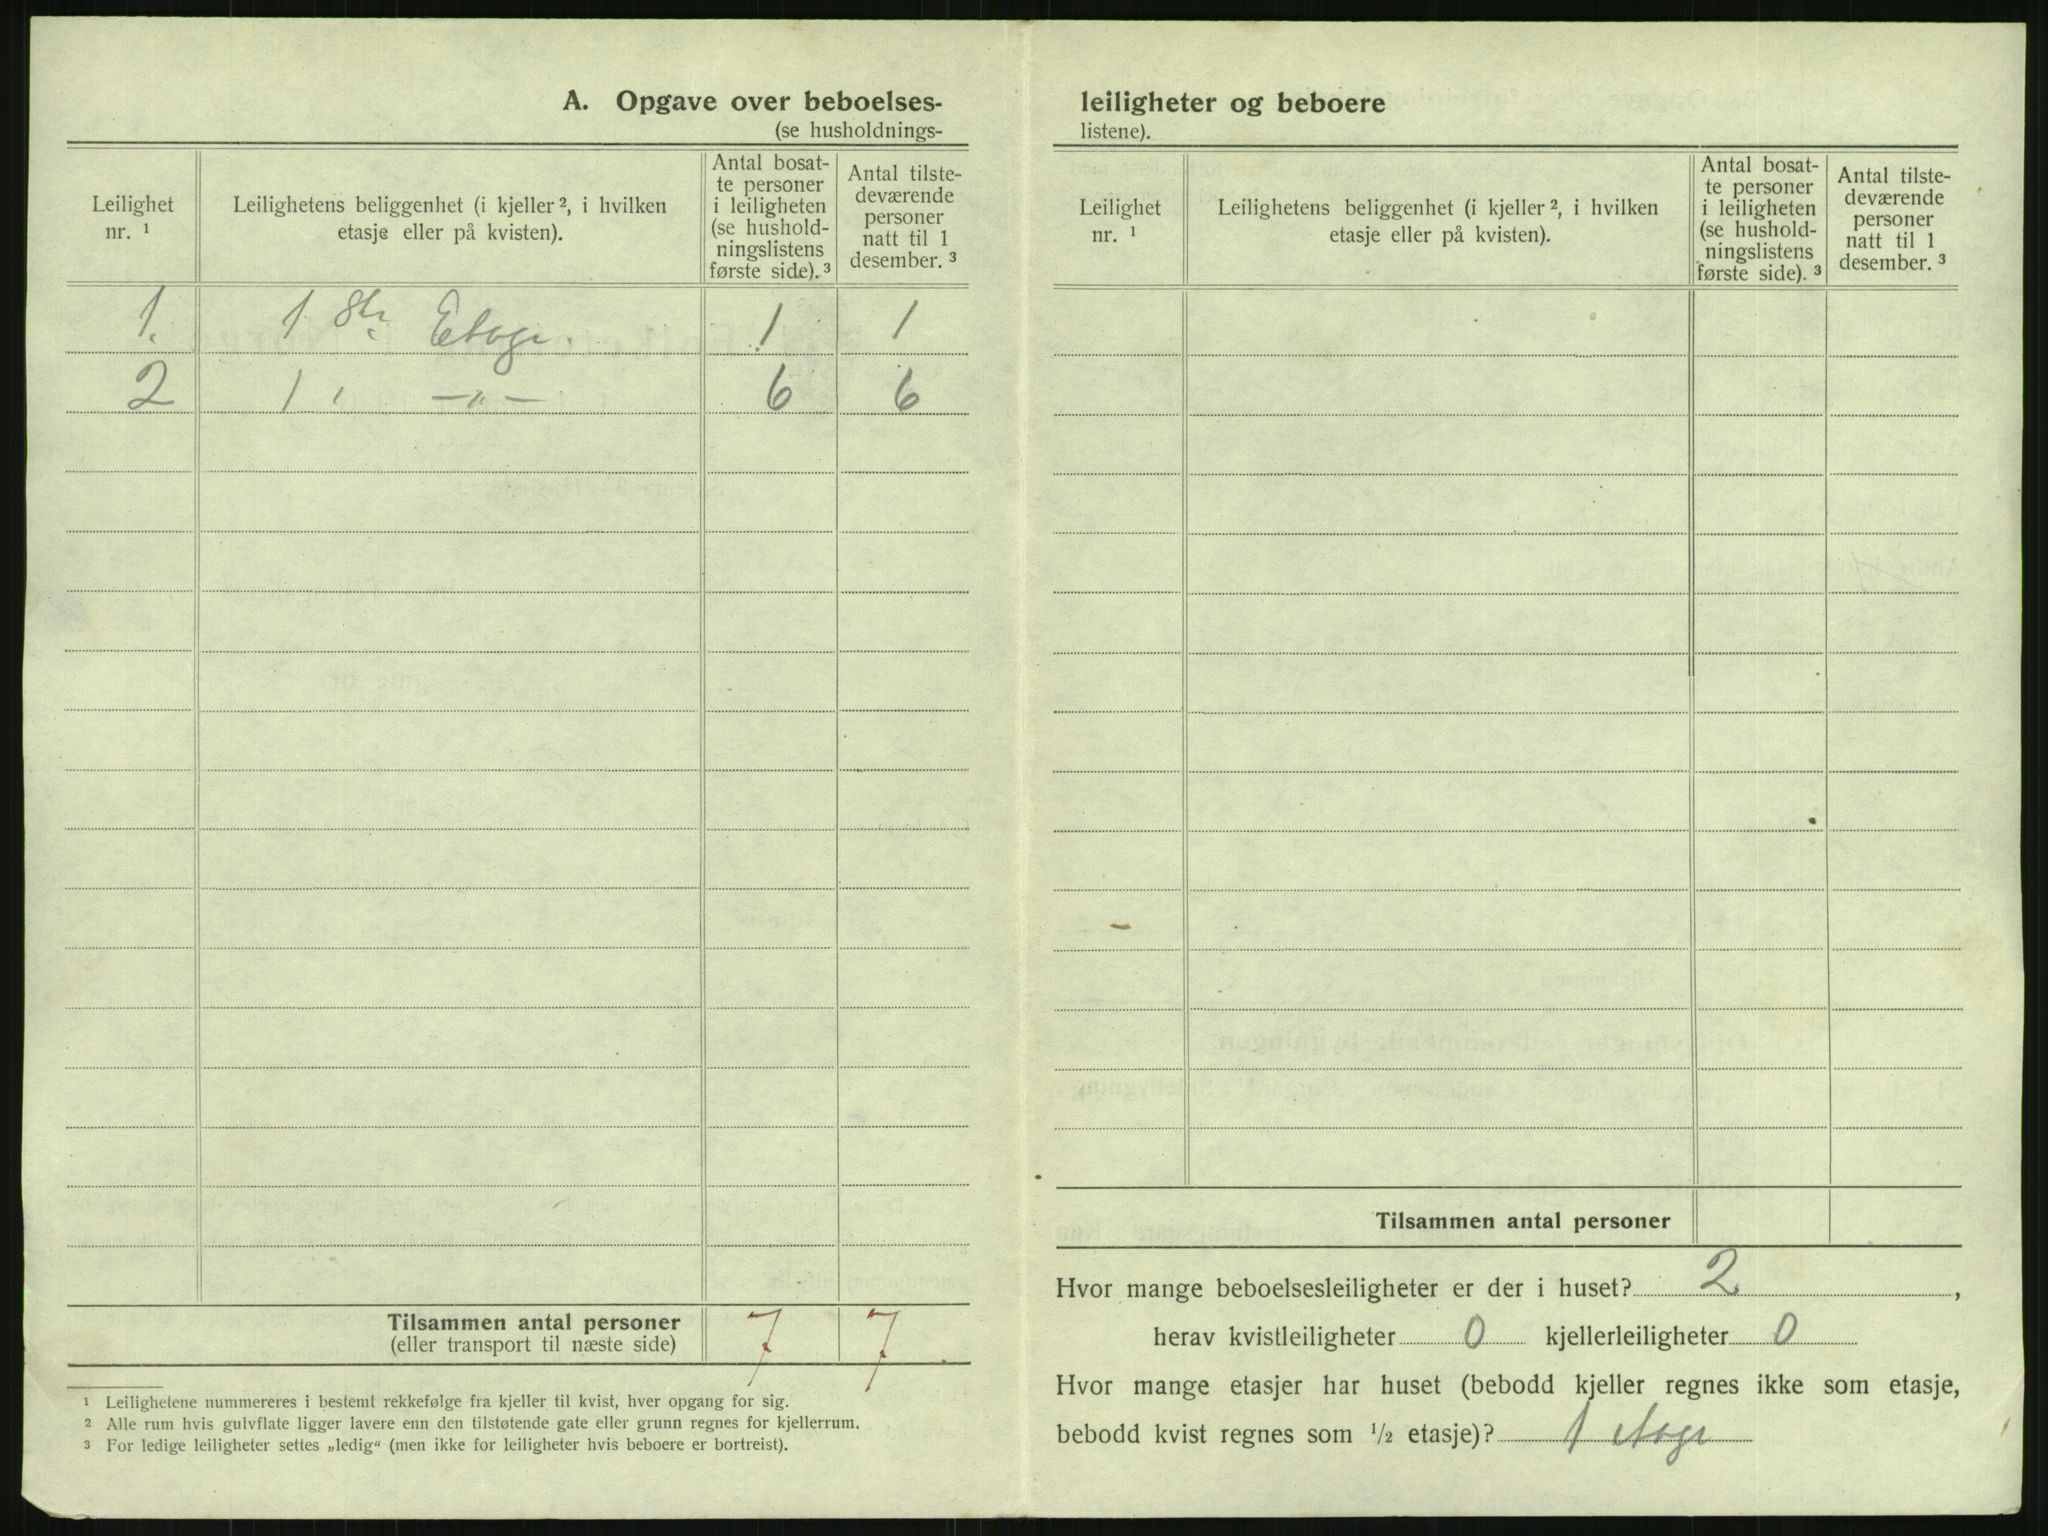 A. Opgave over beboelses-
(se husholdnings-
Leilighet
nr. ¹
Leilighetens beliggenhet (i kjeller ², i hvilken
etasje eller på kvisten).
Antal bosat-
te personer
i leiligheten
(se hushold-
ningslistens
første side). ³
Antal tilste-
deværende
personer
natt til 1
desember. ³
1. 1 Etage. 1 1
2 1 " —"— 6 6
Tilsammen antal personer 7 7
(eller transport til næste side)
¹ Leilighetene nummereres i bestemt rekkefølge fra kjeller til kvist, hver opgang for sig.
² Alle rum hvis gulvflate ligger lavere enn den tilstøtende gate eller grunn regnes for kjellerrum.
³ For ledige leiligheter settes „ledig“ (men ikke for leiligheter hvis beboere er bortreist).
leiligheter og beboere
listene).
Leilighet
nr. ¹
Leilighetens beliggenhet (i kjeller ², i hvilken
etasje eller på kvisten).
Antal bosat-
te personer
i leiligheten
(se hushold-
ningslistens
første side). ³
Antal tilste-
deværende
personer
natt til 1
desember. ³
Tilsammen antal personer
Hvor mange beboelsesleiligheter er der i huset? 2 ,
herav kvistleiligheter 0 kjellerleiligheter 0
Hvor mange etasjer har huset (bebodd kjeller regnes ikke som etasje,
bebodd kvist regnes som ½ etasje)? 1 etage